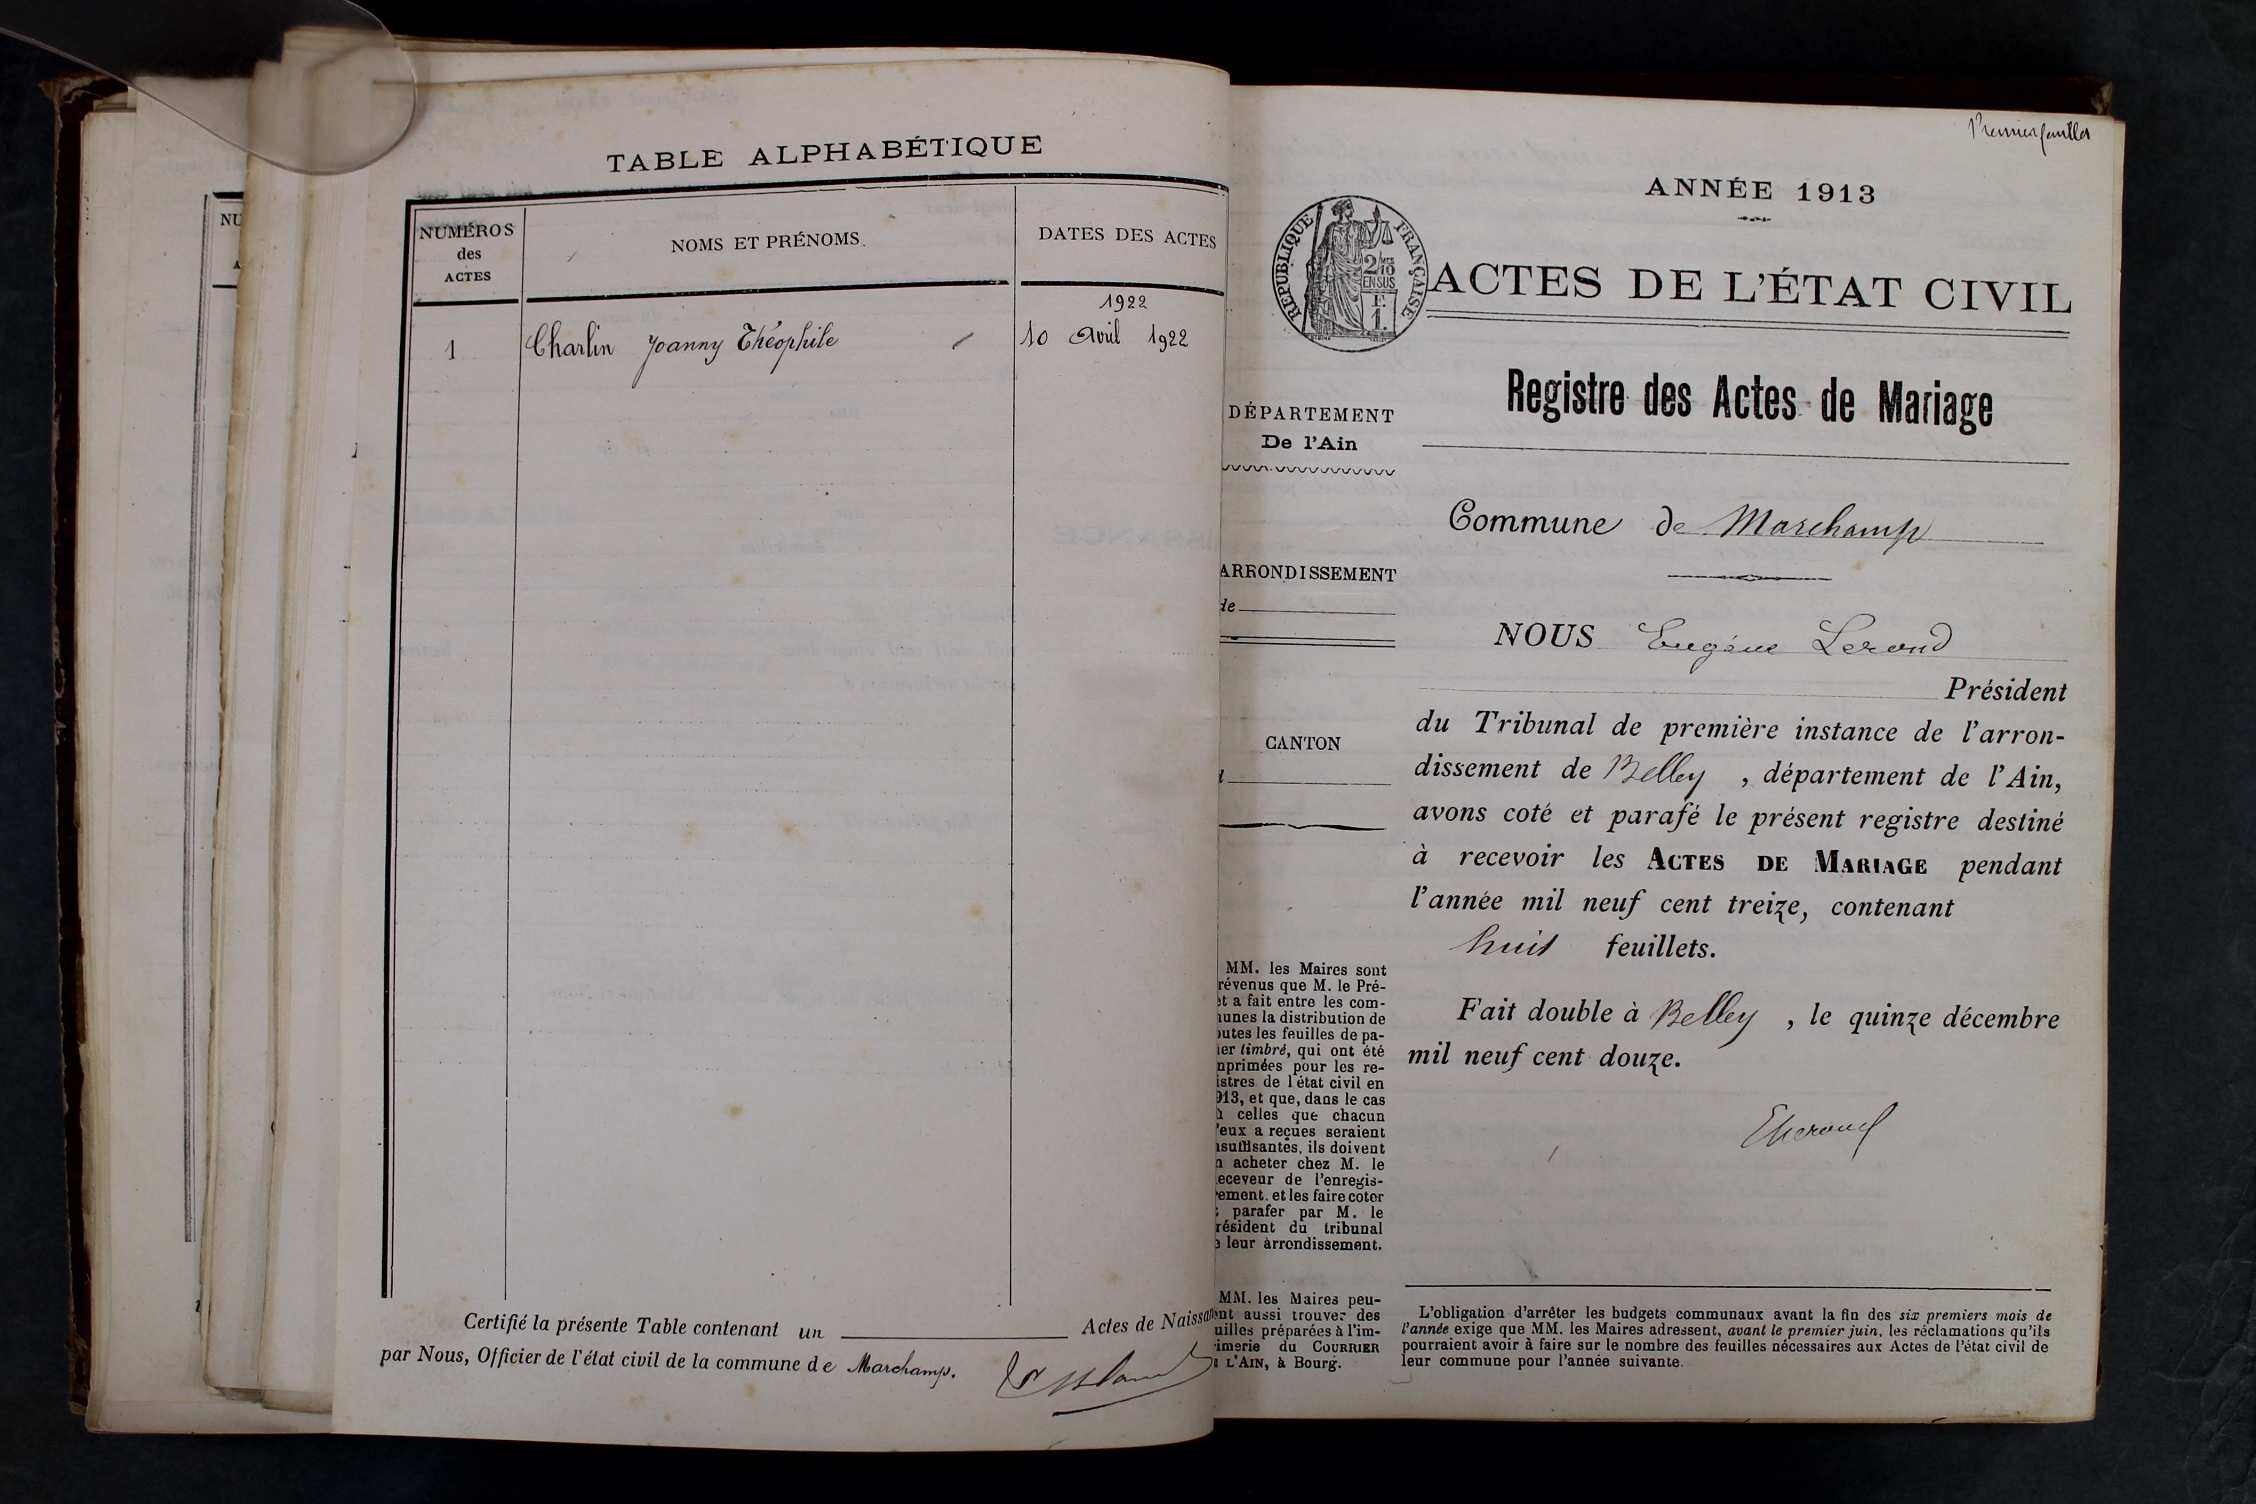 TABLE ALPHABÉTIQUE
NUMÉROS
des
ACTES
NOMS ET PRÉNOMS.
DATES DES ACTES
1922
1 Charlin Joanny Théophile 10 Avril 1922
Certifié la présente Table contenant un Actes de Naissan
par Nous, Officier de l'état civil de la commune de Marchamp.
NU
Premier feuillet
ANNÉE 1913
RÉPUBLIQUE FRANÇAISE
ACTES DE L'ÉTAT CIVIL
Registre des Actes de Mariage
DÉPARTEMENT
De l'Ain
Commune de Marchamp
ARRONDISSEMENT
de
NOUS Eugène
Président
du Tribunal de première instance de l'arron-
dissement de Belley, département de l'Ain,
avons coté et parafé le présent registre destiné
à recevoir les ACTES DE MARIAGE pendant
l'année mil neuf cent treize, contenant
huit feuillets.
Fait double à Belley, le quinze décembre
mil neuf cent douze.
CANTON
MM. les Maires sont
révenus que M. le Pré-
et a fait entre les com-
unes la distribution de
outes les feuilles de pa-
ier timbré, qui ont été
mprimées pour les re-
istres de l'état civil en
913, et que, dans le cas
ù celles que chacun
'eux a reçues seraient
nsuffisantes, ils doivent
n acheter chez M. le
eceveur de l'enregis-
rement. et les faire coter
t parafer par M. le
résident du tribunal
e leur arrondissement.
MM. les Maires peu-
ent aussi trouver des
uilles préparées à l'im-
rimerie du COURRIER
E L'AIN, à Bourg.
L'obligation d'arrêter les budgets communaux avant la fin des six premiers mois de
l'année exige que MM. les Maires adressent, avant le premier juin, les réclamations qu'ils
pourraient avoir à faire sur le nombre des feuilles nécessaires aux Actes de l'état civil de
leur commune pour l'année suivante.